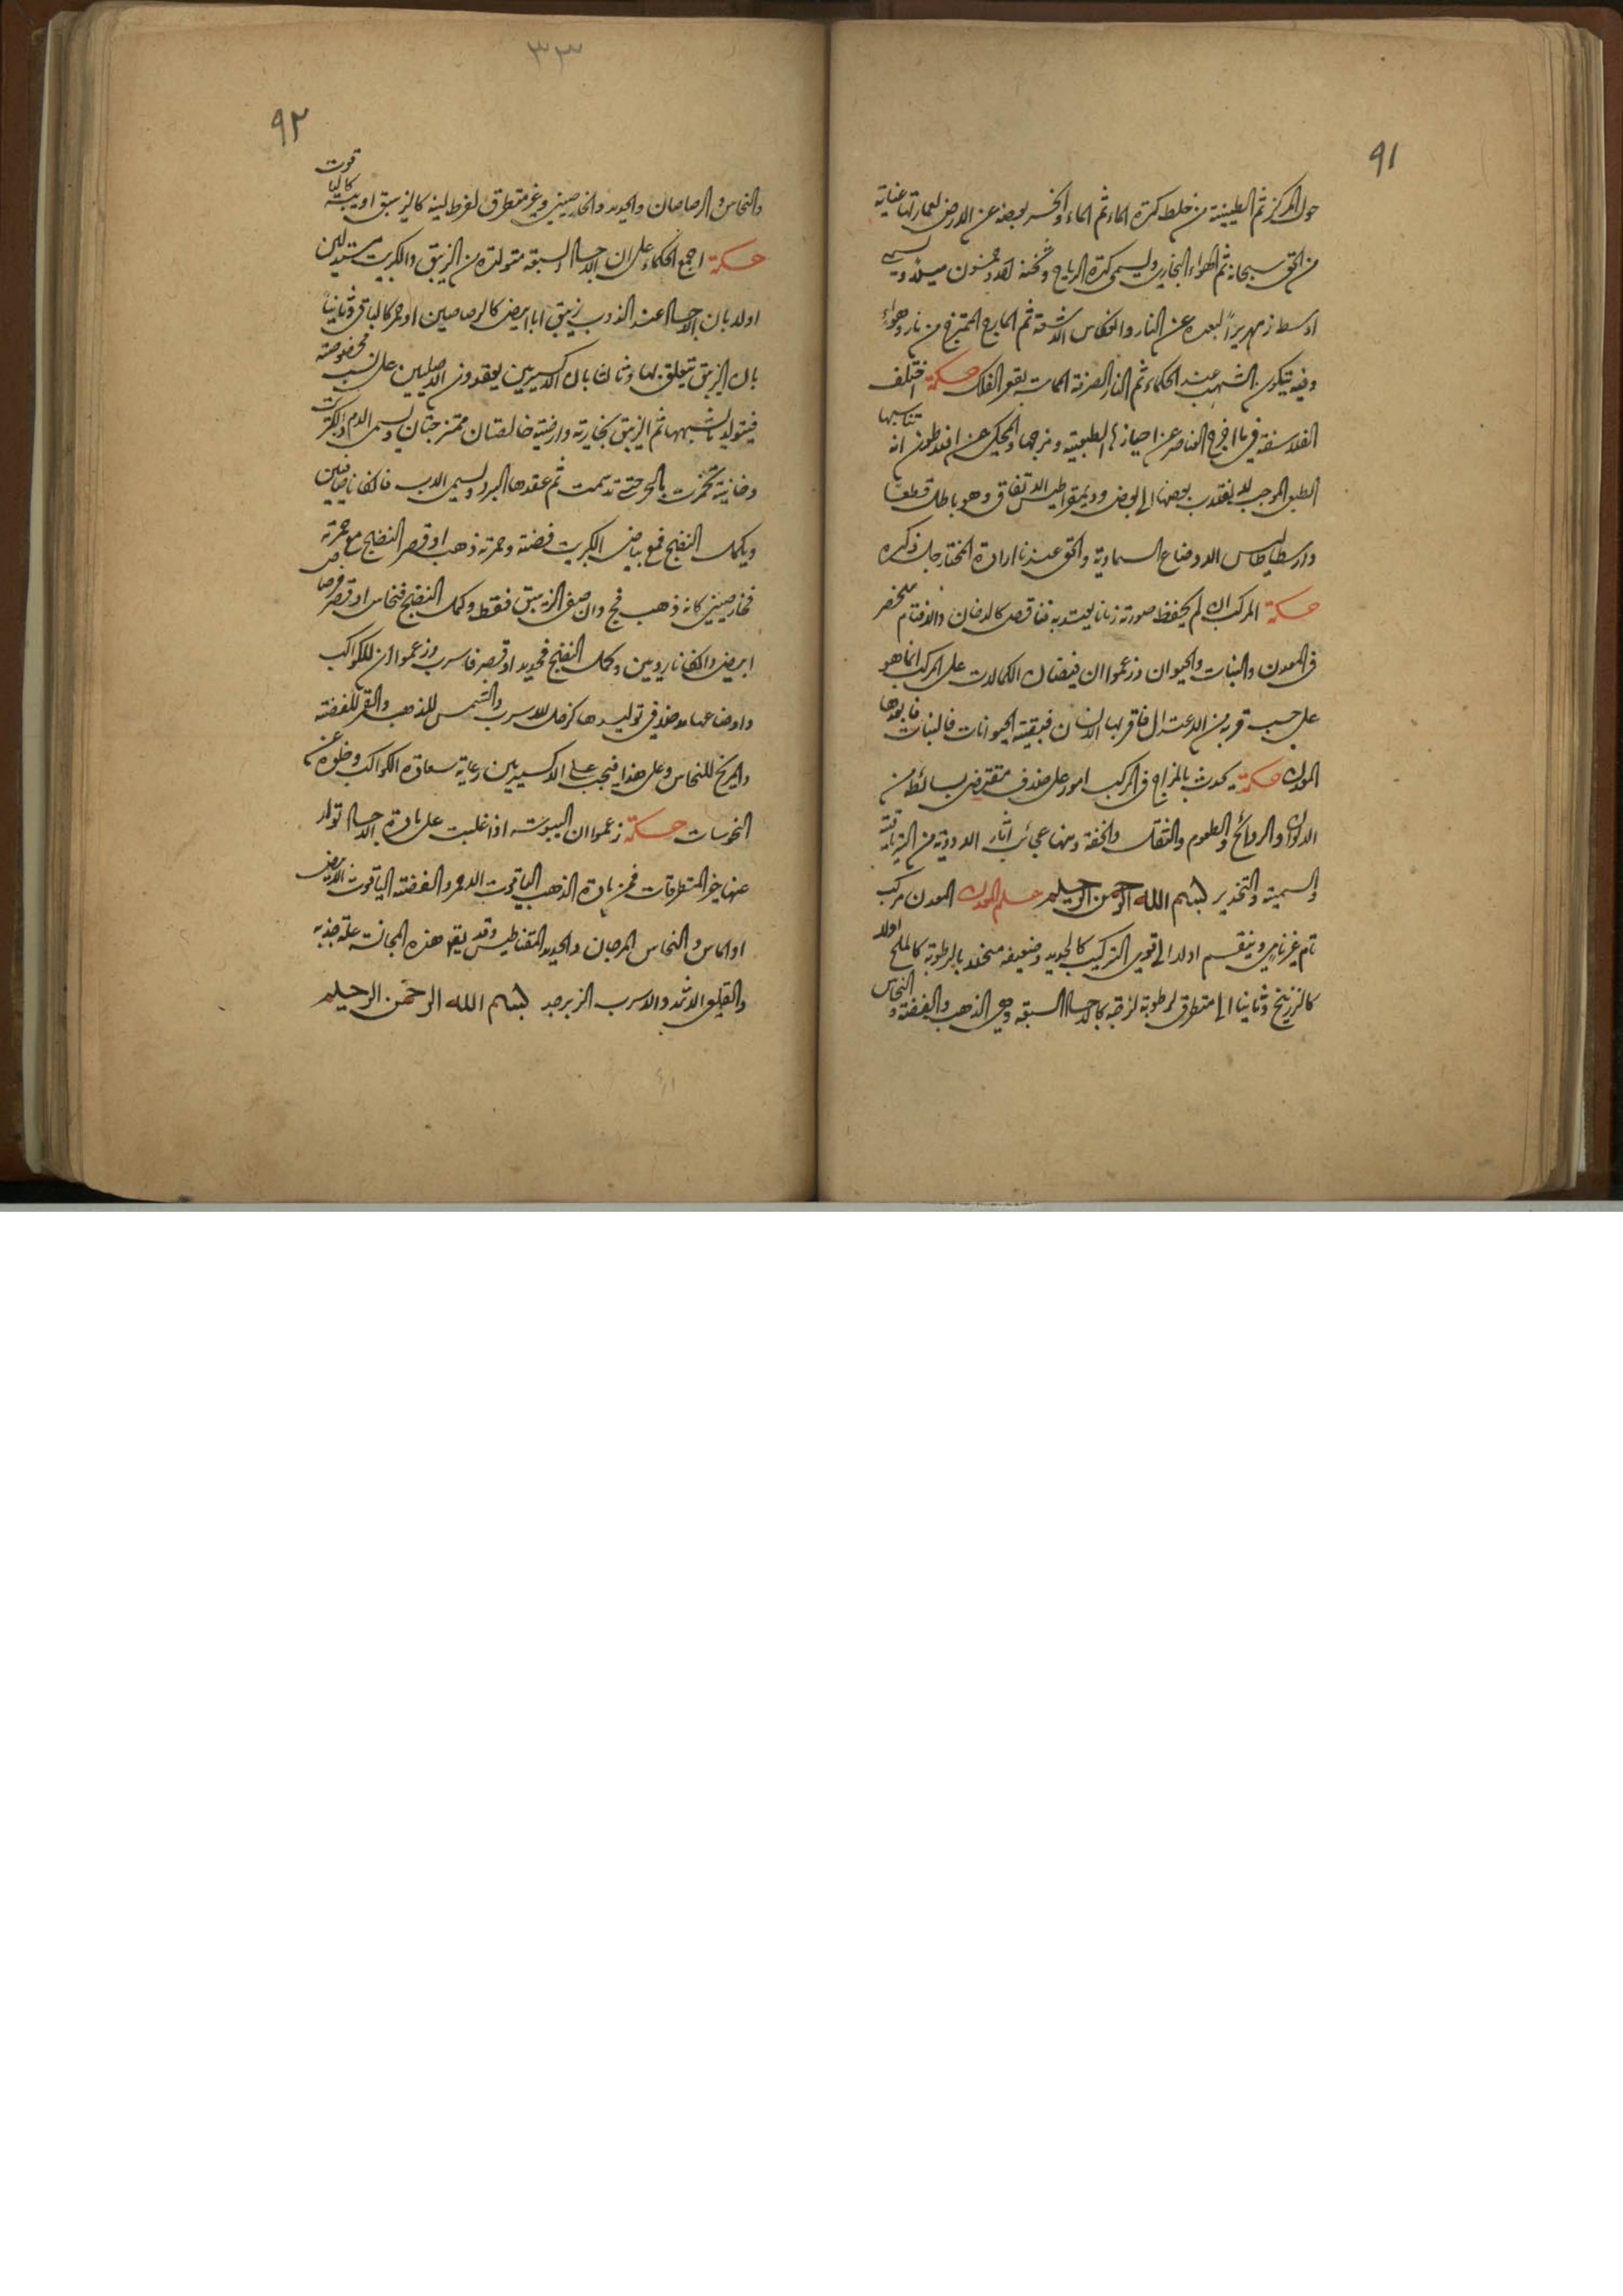 ٩١
حول المركز ثم الطينية من خلط كرة الماء ثم الماء وانحسر بعضه عن الارض لعمارتها عناية
من الحق سبحانه ثم الهواء البخاري ويسمى كرة الرياح وثخنه احد وخمسون ميلا ويسمى
اوسط زمهريرًا لبعده عن النار وانعكاس الاشعة ثم المارج الممتزج من نار وهواء
وفيه يتكون الشهب عند الحكماء ثم النار الصرفة المماسة بقعر الفلك حكمة اختلف
الفلاسفة فيما اخرج العناصر عن احيازها الطبيعية ومزجها والمحكي عن افلاطون انه تناسبها
الطبعي الموجب لانقلاب بعضها الى بعض وديمقراطيس الاتفاق وهو باطل قطعًا
وارسطاطاليس الاوضاع السماوية والحق عندنا ارادة المختار جل ذكره
حكمة المركب ان لم يحفظ صورته زمانا يعتد به فناقص كالدخان والا فتام منحصر
في المعدن والنبات والحيوان وزعموا ان فيضان الكمالات على المركب انما هو
على حسب قربه من الاعتدال فاقربها الانسان فبقية الحيوانات فالنبات فابعدها
المعدن حكمة يحدث بالمزاج في المركب امور على خلاف مقتضى بسائطه من
الالوان والروائح والطعوم والثقل والخفة ومنها عجائب اثار الادوية من الترياقية
والسمية والتخدير بسم الله الرحمن الرحيم علم المعدن المعدن مركب
تام غير نامي وينقسم اولا الى قوي التركيب كالحديد وضعيفه منحلا بالرطوبة كالملح اولا
كالزرنيخ وثانيا الى متطرق لرطوبة لزجة كالاجساد السبعة وهي الذهب والفضة و النحاس
٣٣
٩٢
والنحاس والرصاصان والحديد والخارصيني وغير متطرق لفرط لينه كالزيبق او يبسه كاليا قوت
حكمة اجمع الحكماء على ان الاجساد السبعة متولدة من الزيبق والكبريت مستدلين
اولا بان الاجساد عند الذوب زيبق اما ابيض كالرصاصين او احمر كالباقي وثانيًا
بان الزيبق يتعلق بها وثالثا بان الاكسيريين يعقدون الاصليين على نسب مخصوصة
فيتولد ما يشبهها ثم الزيبق بخارية وارضية خالصتان ممتزجتان ويسمى الام والكبريت
دخانية تخمرت بالحر حتى تدسمت ثم عقدها البرد ويسمى الاب فان كانا صافيين
ويكمل النضج فمع بياض الكبريت فضة وحمرته ذهب او قصر النضج مع حمرته
فخارصيني كانه ذهب فج وان صفى الزيبق فقط وكمل النضج فنحاس او قصر فرصاص
ابيض وان كانا رديين وكمل النضج فحديد او قصر فاسرب وزعموا ان للكواكب
واوضاعها مدخلا في توليدها كزحل للاسرب والشمس للذهب والقمر للفضة
والمريخ للنحاس وعلى هذا فيجب على الاكسيريين رعاية سعادة الكواكب وخلوه عن
النحوسات حكمة زعموا ان اليبوسة اذا غلبت على مادة الاجساد تولد
عنها غير المتطرقات فمن مادة الذهب الياقوت الاحمر والفضة الياقوت الابيض
او الماس والنحاس المرجان والحديد المقناطيس وقد يقع هذه المجانسة علة جذبه
والقلعي الاثمد والاسرب الزبرجد بسم الله الرحمن الرحيم